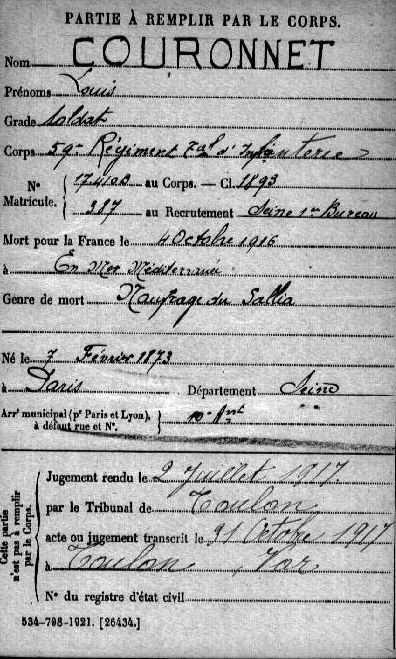 PARTIE À REMPLIR PAR LE CORPS.
Nom COURONNET
Prénoms Louis
Grade Soldat
Corps 59e Régiment Tal d'Infanterie
N° Matricule. { 17410B au Corps. — Cl. 1893
387 au Recrutement Seine 1er Bureau
Mort pour la France le 4 Octobre 1916
à En Mer Méditerranée
Genre de mort Naufrage du Gallia
Né le 7 Février 1873
à Paris Département Seine
Arrt municipal (pr Paris et Lyon), à défaut rue et N°. } 10e Arrt
Cette partie n'est pas à remplir par le Corps.
Jugement rendu le 2 Juillet 1917
par le Tribunal de Toulon
acte ou jugement transcrit le 31 Octobre 1917
à Toulon Var
N° du registre d'état civil
534-708-1921. [26434.]